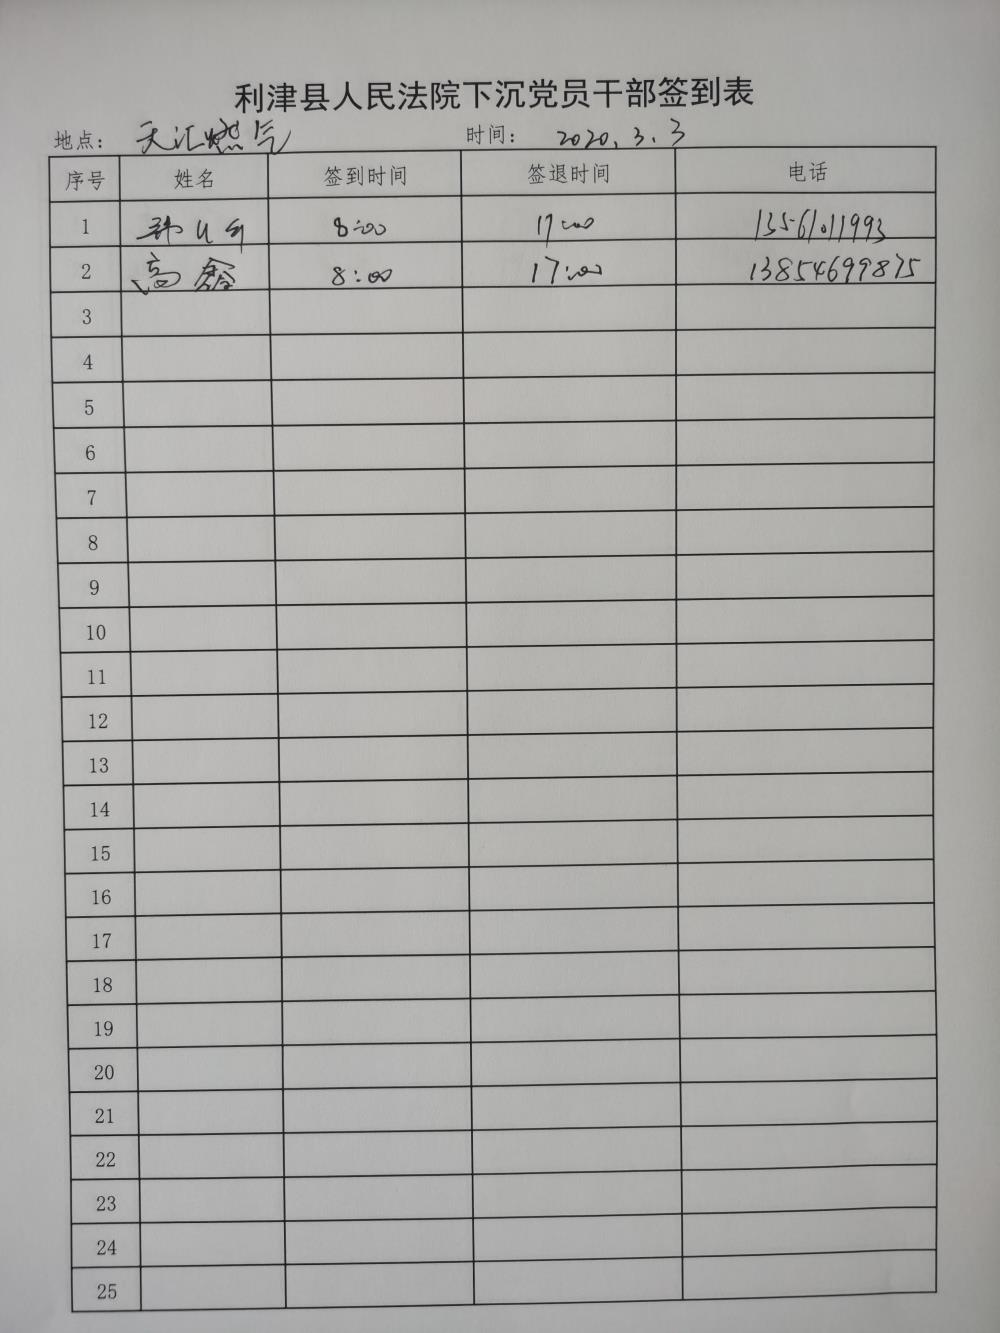 利津县人民法院下沉党员干部签到表
地点: 天汇燃气 时间: 2020.3.3
序号 姓名 签到时间 签退时间 电话
1 8:00 17:00 13561011993
2 高鑫 8:00 17:00 13854699875
3
4
5
6
7
8
9
10
11
12
13
14
15
16
17
18
19
20
21
22
23
24
25